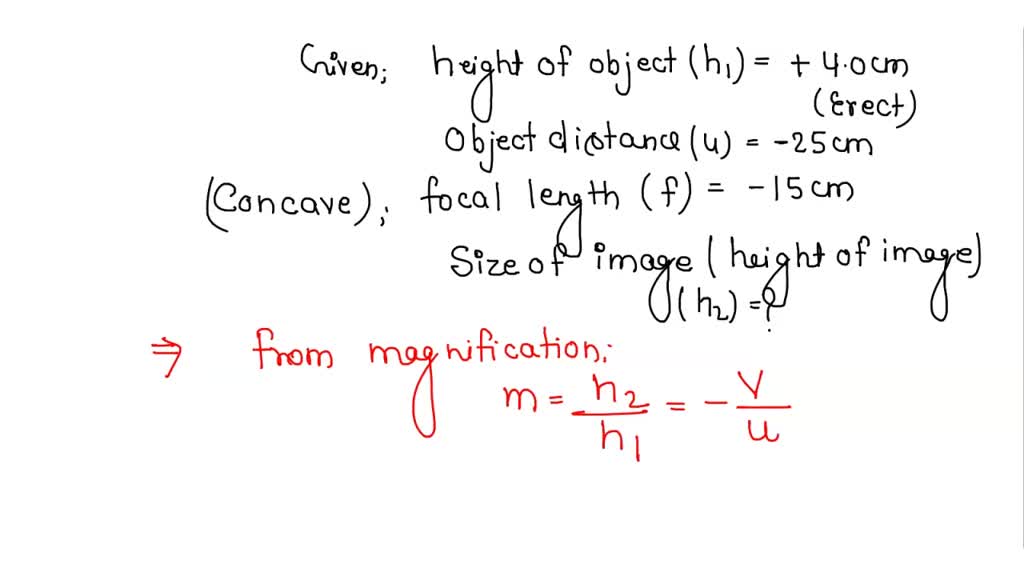 Given; height of object (h₁) = + 4.0cm
(Erect)
Object distance (u) = -25cm
(Concave); focal length (f) = -15cm
Size of image (height of image)
(h₂) = ?
⇒ from magnification;
m = h₂/h₁ = - v/u